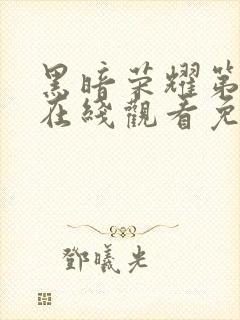 黑暗荣耀第
在线觀看免
鄧曦光